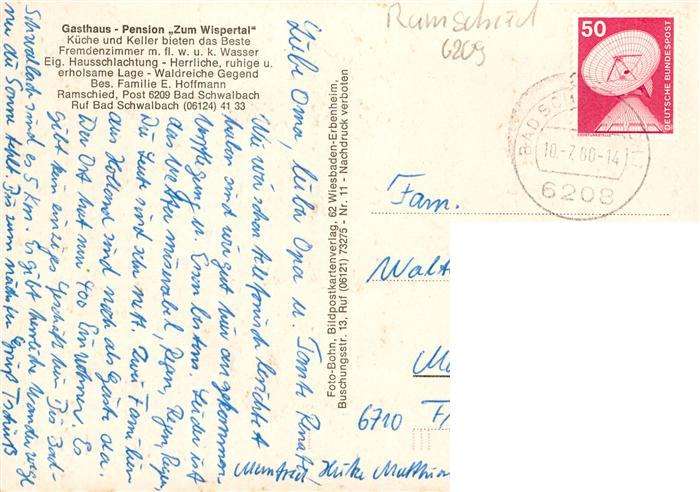 Gasthaus - Pension „Zum Wispertal"
Küche und Keller bieten das Beste
Fremdenzimmer m. fl. w. u. k. Wasser
Eig. Hausschlachtung - Herrliche, ruhige u.
erholsame Lage - Waldreiche Gegend
Bes. Familie E. Hoffmann
Ramschied, Post 6209 Bad Schwalbach
Ruf Bad Schwalbach (06124) 41 33
Ramschied
6209
50
DEUTSCHE BUNDESPOST
BAD
10.-7.80-14
6208
Liebe Oma, lieber Opa u. Tante Renate!
Wie wir schon telefonisch berichtet
haben sind wir gut hier angekommen.
Verpflegung u. Essen bestens. Leider ist
das Wetter miserabel, Regen, Regen, Regen,
Die Leute sind sehr nett. Zwei Familien
aus Holland sind noch als Gäste da.
Der Ort hat nur 400 Einwohner. Es
gibt kein einziges Geschäft hier. Bis Bad-
Schwalbach sind es 5 km. Es gibt herrliche Wanderwege
nur die Sonne fehlt. Bis zum nächsten Gruß Tschüß
Manfred, Heike
Foto-Bohn, Bildpostkartenverlag, 62 Wiesbaden-Erbenheim,
Buschungsstr. 13, Ruf (06121) 73275 - Nr. 11 - Nachdruck verboten
Fam.
Walt
6710